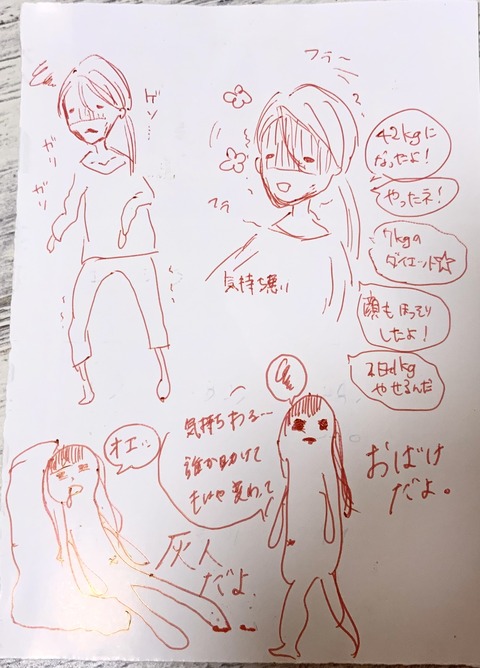 ゲソ……
ガリ
ガリ
フラ〜
フラ
気持ち悪い
42kgに
なったよ！
やったネ！
7kgの
ダイエット☆
顔もほっそり
したよ！
1日1kg
やせるんだ
オエッ
気持ちわる…
誰か助けて
もはや変わって
灰人
だよ。
おばけ
だよ。